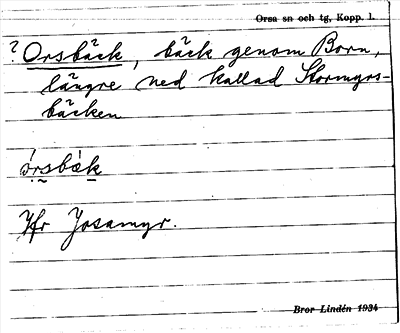 Orsa sn och tg, Kopp. l.
? Orsbäck, bäck genom Born,
längre ned kallad Stormyrs-
bäcken
órsbä̀k
Jfr Josamyr.
Bror Lindén 1934